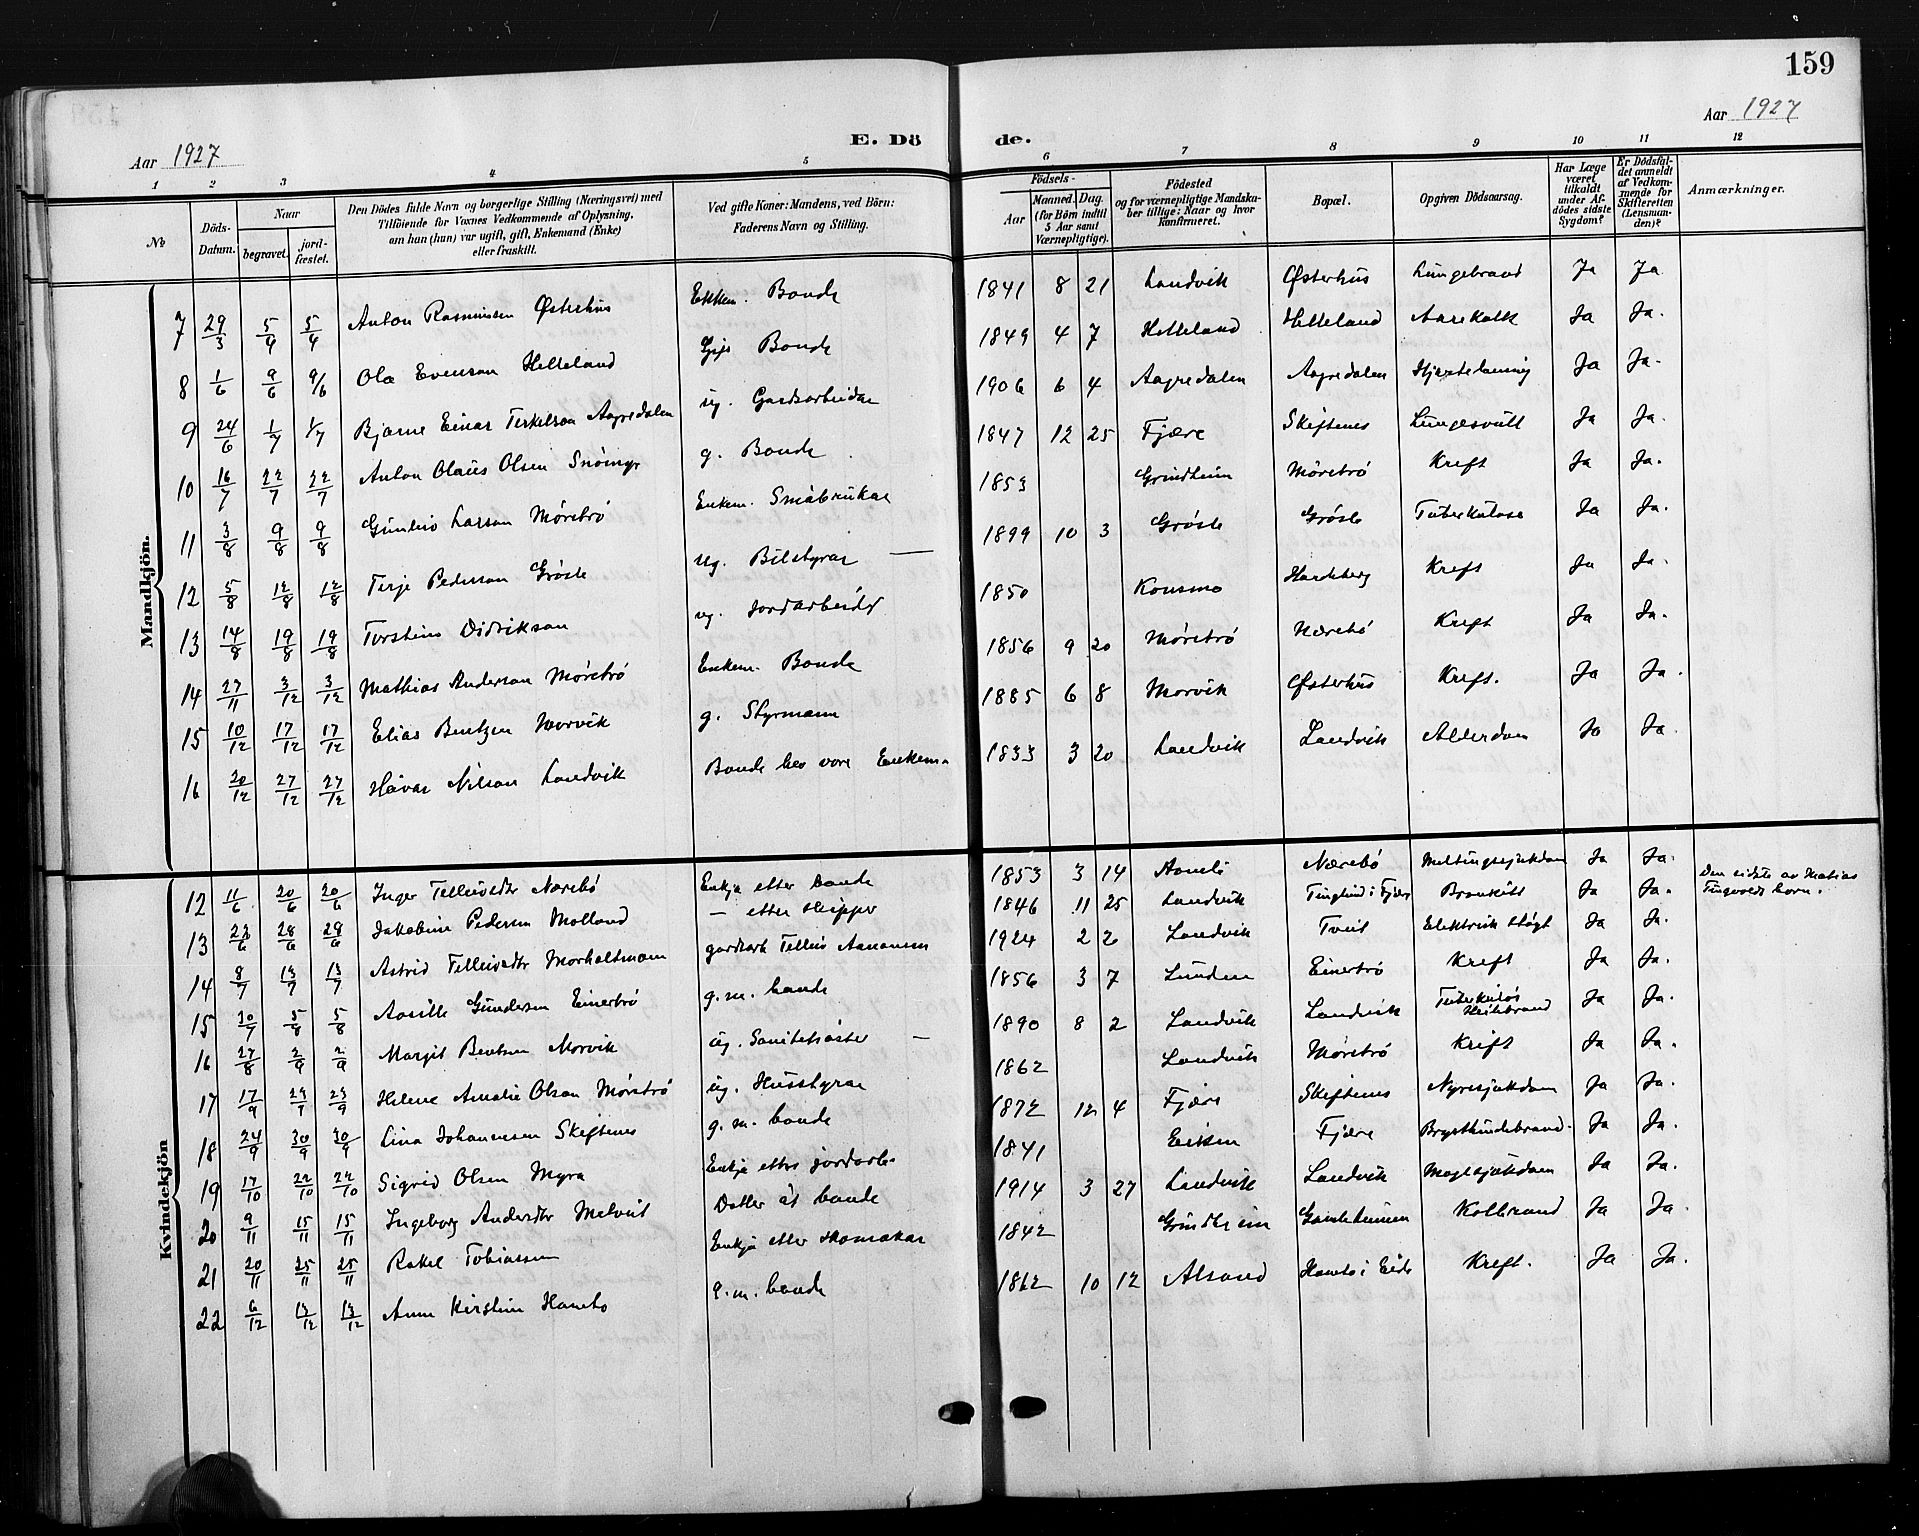 159
Aar 1927
Aar 1927
E. Dö
de.
1 2 3 4 5 6 7 8 9 10 11 12
№
Döds-Datum.
Naar
begravet.
jord-fæstet.
Den Dödes fulde Navn og borgerlige Stilling (Næringsvei) med
Tilföiende for Voxnes Vedkommende af Oplysning,
om han (hun) var ugift, gift, Enkemand (Enke)
eller fraskilt.
Ved gifte Koner: Mandens, ved Börn:
Faderens Navn og Stilling.
Födsels-
Aar
Maaned. Dag.
(for Börn indtil
5 Aar samt
Værnepligtige).
Födested
og for værnepligtige Mandska-
ber tillige: Naar og hvor
konfirmeret.
Bopæl.
Opgiven Dödsaarsag.
Har Læge
været
tilkaldt
under Af-
dödes sidste
Sygdom?
Er Dödsfal-
det anmeldt
af Vedkom-
mende for
Skifteretten
(Lensman-
den)?
Anmærkninger.
Mandkjön.
7 29/3 5/4 5/4 Anton Rasmussen Østerhus Enkem. Bonde 1841 8 21 Landvik Østerhus Lungebrand Ja Ja.
8 1/6 9/6 9/6 Ola Evenson Helleland Gift Bonde 1849 4 7 Helleland Helleland Aarekalk Ja Ja.
9 24/6 1/7 1/7 Bjarne Einar Terkelson Aagredalen ug. Gardsarbeidar 1906 6 4 Aagredalen Aagredalen Hjertelamning Ja Ja.
10 16/7 22/7 22/7 Anton Olaus Olsen Snömyr g. Bonde 1847 12 25 Fjære Skiftenes Lungesvull Ja Ja.
11 3/8 9/8 9/8 Gunleiv Larson Møretrø Enkem. Småbrukar 1853 Grindheim Møretrø Kreft Ja Ja.
12 5/8 12/8 12/8 Terje Pederson Grøsle ug. Bilstyrar 1899 10 3 Grøsle Grøsle Tuberkulose Ja Ja.
13 14/8 19/8 19/8 Torsteins Didrikson ug. Jordarbeider 1850 Konsmo Hardeberg Kreft Ja Ja.
14 27/11 3/12 3/12 Mathias Anderson Møretrø Enkem. Bonde 1856 9 20 Møretrø Nærebø Kreft Ja Ja.
15 10/12 17/12 17/12 Elias Bentzen Morvik g. Styrmann 1885 6 8 Morvik Østerhus Kreft. Ja Ja.
16 20/12 27/12 27/12 Håvar Nilson Landvik Bonde hev vore Enkem. 1833 3 20 Landvik Landvik Alderdom Ja Ja.
Kvindekjön
12 11/6 20/6 20/6 Inger Tellevsdtr Nærebø Enkja etter bonde 1853 3 14 Aamli Nærebø Meltingssjukdom Ja Ja.
13 22/6 28/6 28/6 Jakobine Pedersen Molland — etter skipper 1846 11 25 Landvik i Fjære Bronkitt Ja Ja. Den sidste av Matias
14 8/7 13/7 13/7 Astrid Tellevsdtr Morholtmoen gardsarb Tellev Aanonsen 1924 2 2 Landvik Tveit Elektrisk støyt Ja Ja.
15 30/7 5/8 5/8 Aasille Gundersen Einertrø g. m. bonde 1856 3 7 Lunden Einertrø Kreft Ja Ja.
16 27/8 2/9 2/9 Margit Bentsen Morvik ug. Sanitetsøster — 1890 8 2 Landvik Landvik Tuberkuløs Ja Ja.
17 17/9 23/9 23/9 Helene Amalie Olsen Møretrø ug. Husstyrar 1862 Landvik Møretrø Kreft Ja Ja.
18 24/9 30/9 30/9 Lina Johannesen Skiftenes g. m. bonde 1872 12 4 Fjære Skiftenes Nyresjukdom Ja Ja.
19 17/10 22/10 22/10 Sigrid Olsen Myra Enkja etter jordarb. 1841 Eiken Fjære Brysthindebrand. Ja Ja.
20 9/11 15/11 15/11 Ingeborg Andersdtr Molveit Dotter åt bonde 1914 3 27 Landvik Landvik Magesjukdom Ja Ja.
21 20/11 25/11 25/11 Rakel Tobiassen Enkja etter skomakar 1842 Grindheim Kolbrand Ja Ja.
22 6/12 13/12 13/12 Anne Kirstine Hamto g. m. bonde 1862 10 12 Alsand i Eide Kreft. Ja Ja.